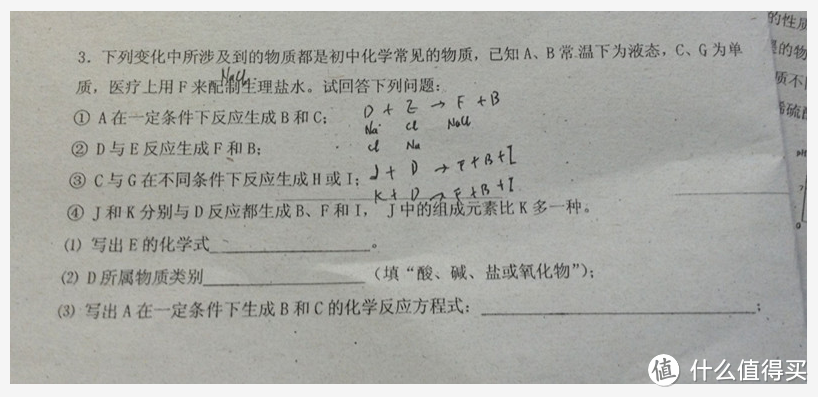 的性质
3. 下列变化中所涉及到的物质都是初中化学常见的物质，已知 A、B 常温下为液态，C、G 为单
的物
NaCl
质，医疗上用 F 来配制生理盐水。试回答下列问题：
质不
① A 在一定条件下反应生成 B 和 C；
D + E → F + B
稀硫酸
Na Cl NaCl
② D 与 E 反应生成 F 和 B；
Cl Na
③ C 与 G 在不同条件下反应生成 H 或 I；
J + D → F + B + I
K + D → F + B + I
④ J 和 K 分别与 D 反应都生成 B、F 和 I， J 中的组成元素比 K 多一种。
(1) 写出 E 的化学式______________。
(2) D 所属物质类别______________（填“酸、碱、盐或氧化物”）；
(3) 写出 A 在一定条件下生成 B 和 C 的化学反应方程式：______________；
值 什么值得买